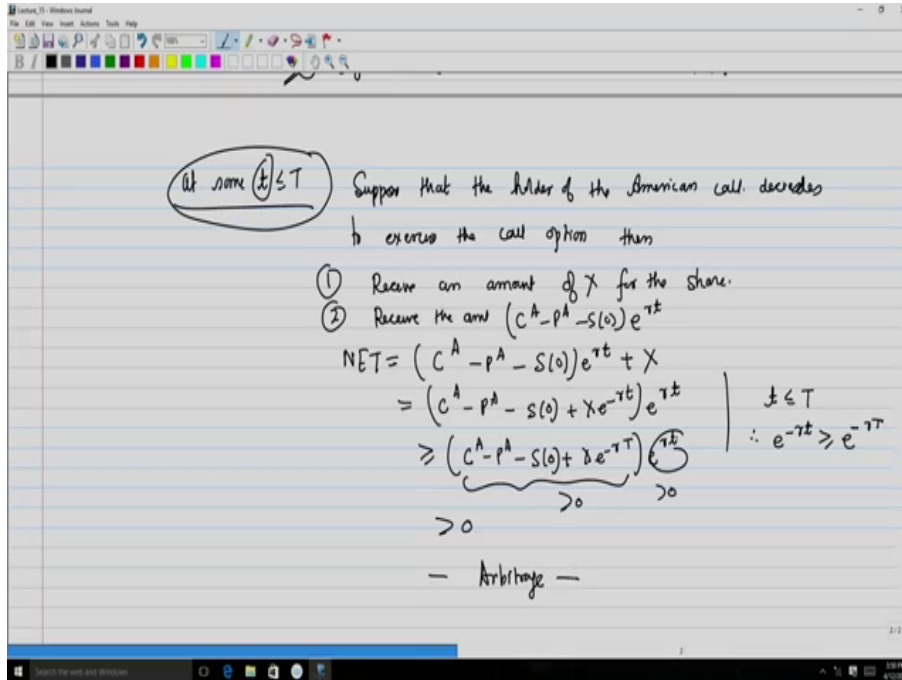 Lecture_15 - Windows Journal
File Edit View Insert Actions Tools Help
B I
At some t ≤ T
Suppos that the holder of the American call decides
to exercise the call option then
① Receive an amount of X for the share.
② Receive the amt (C^A - P^A - S(0)) e^{rt}
NET = (C^A - P^A - S(0)) e^{rt} + X
= (C^A - P^A - S(0) + X e^{-rt}) e^{rt}
t ≤ T
≥ (C^A - P^A - S(0) + X e^{-rT}) e^{rt}
∴ e^{-rt} ≥ e^{-rT}
>0 >0
>0
— Arbitrage —
2/2
Search the web and Windows